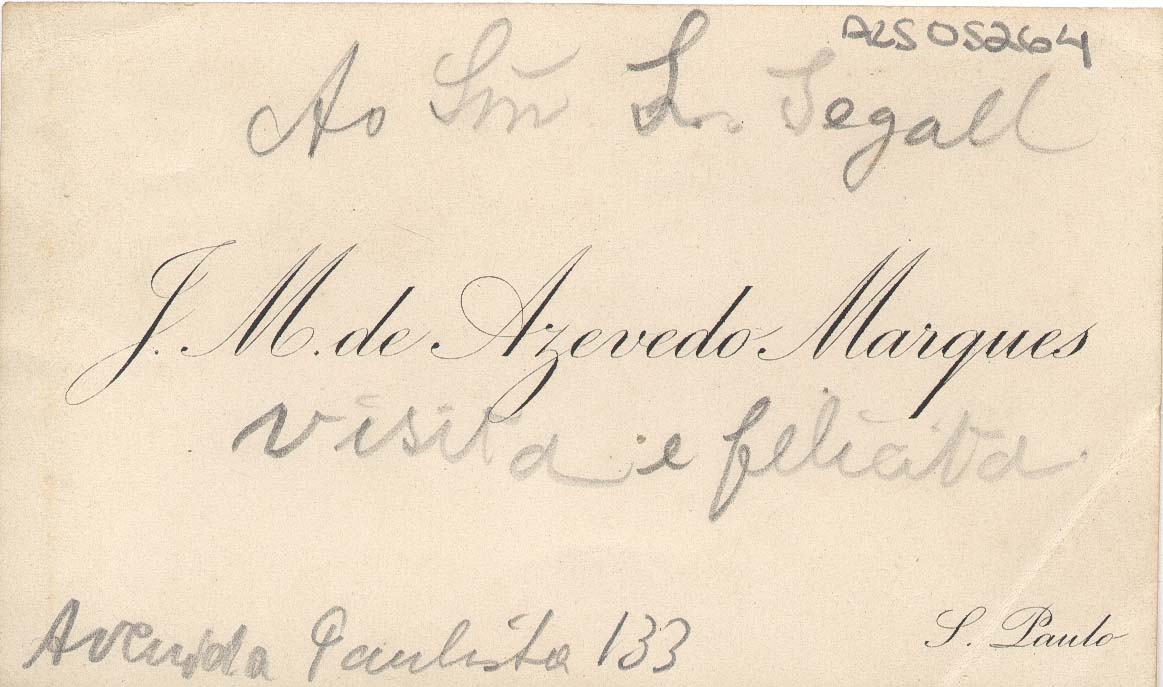 ALS 05264
Ao Snr. L. Segall
J. M. de Azevedo Marques
visita e felicita.
Avenida Paulista 133
S. Paulo